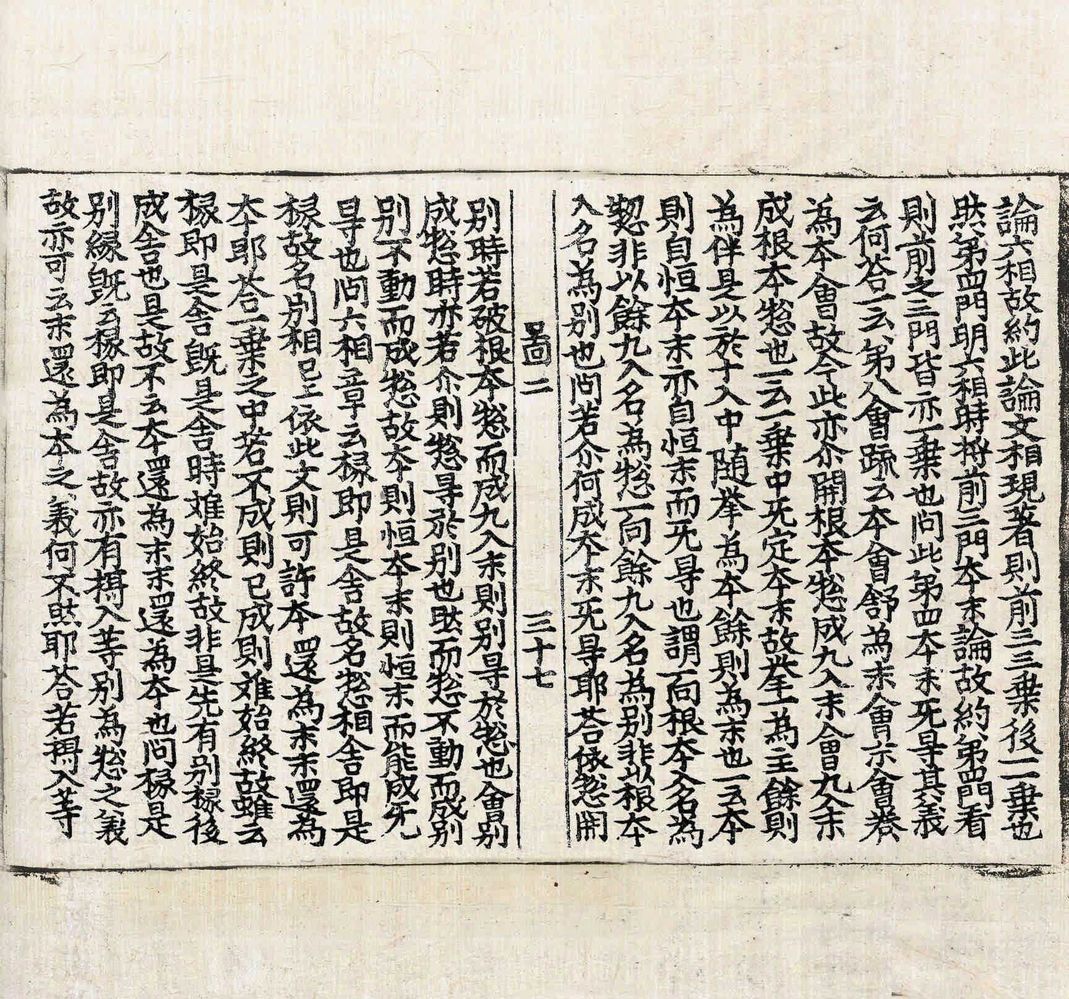 論六相故約此論文相現著則前三三乗後一一乗也
然第四門明六相時将前三門本末論故約第四門看
則前之三門皆亦一乗也問此第四本末旡㝵其義
云何荅一云第八會䟽云本會舒為末會六會巻
為本會故今此亦尒開根本惣成九入末會九入末
成根本惣也一云一乗中旡定本末故挙一為主餘則
為伴是以於十入中随挙為本餘則為末也一云本
則自恒本末亦自恒末而旡㝵也謂一向根本入名為
惣非以餘九入名為惣一向餘九入名為別非以根本
入名為別也問若尒何成本末旡㝵耶荅依惣開
啚二 三十七
別時若破根本惣而成九入末則別㝵於惣也會別
成惣時亦若尒則惣㝵於別也然而惣不動而成別
別不動而成惣故本則恒本末則恒末而能成旡
㝵也問六相章云椽即是舎故名惣相舎即是
椽故名別相已上依此文則可許本還為末末還為
本耶荅一乗之中若不成則已成則难始終故雖云
椽即是舎旣是舎時难始終故非是先有別椽後
成舎也是故不云本還為末末還為本也問椽是
別縁旣云椽即是舎故亦有搙入䓁別為惣之義
故亦可云末還為本之義何不然耶荅若搙入䓁